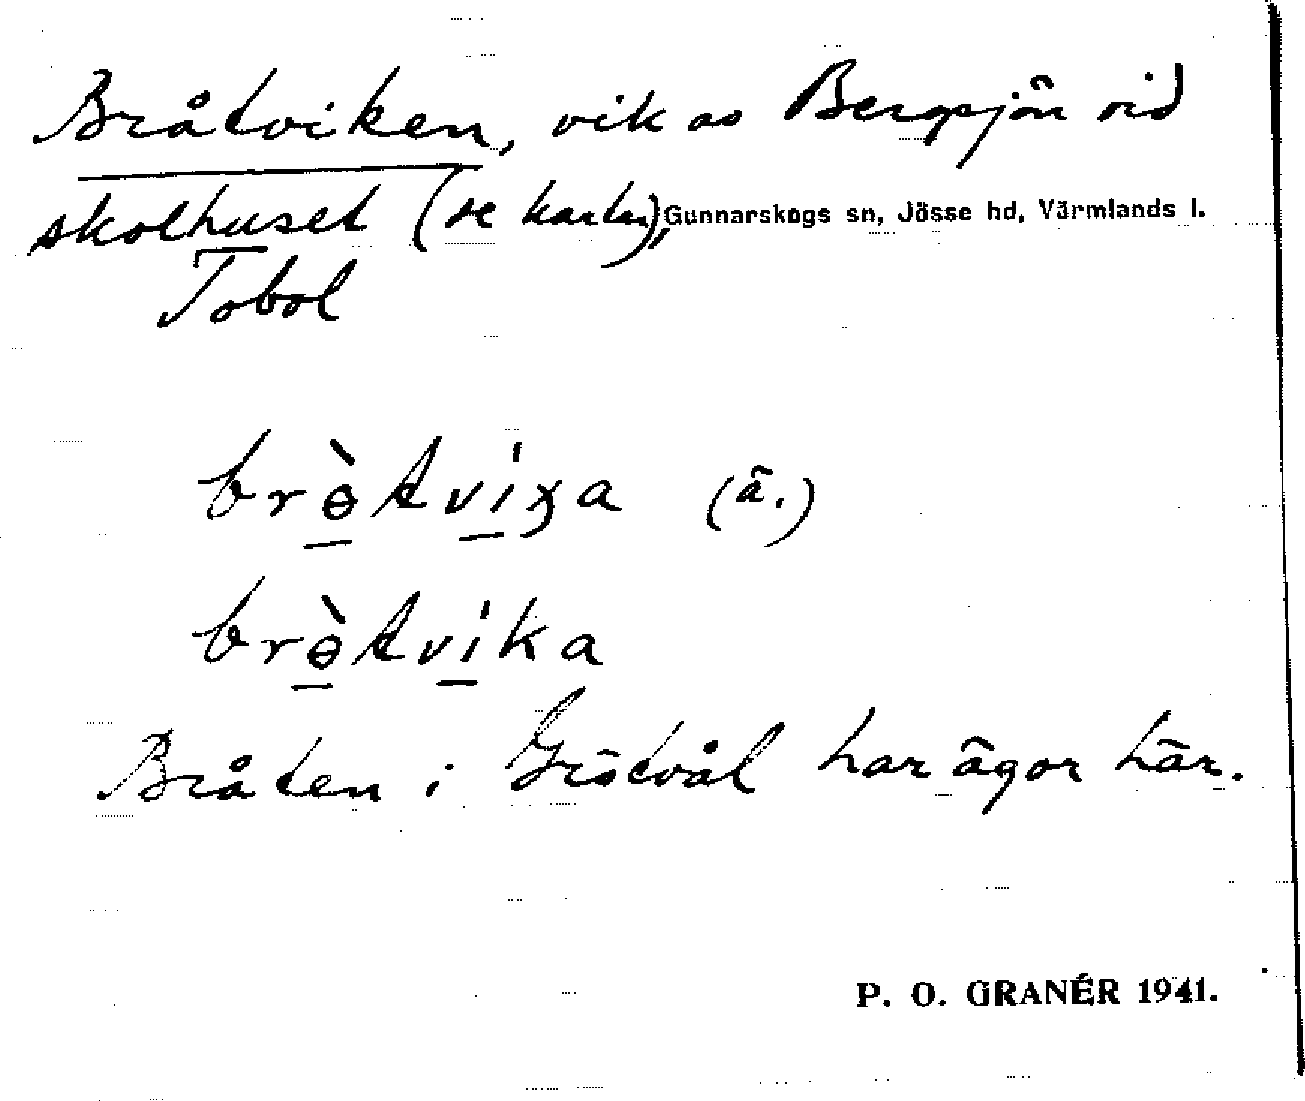 Bråtviken, vik av Bergsjön vid
skolhuset (se karta), Gunnarskogs sn, Jösse hd, Värmlands l.
Tobol
(ä.)
Bråten i Grötvål har ägor här.
P. O. GRANÉR 1941.